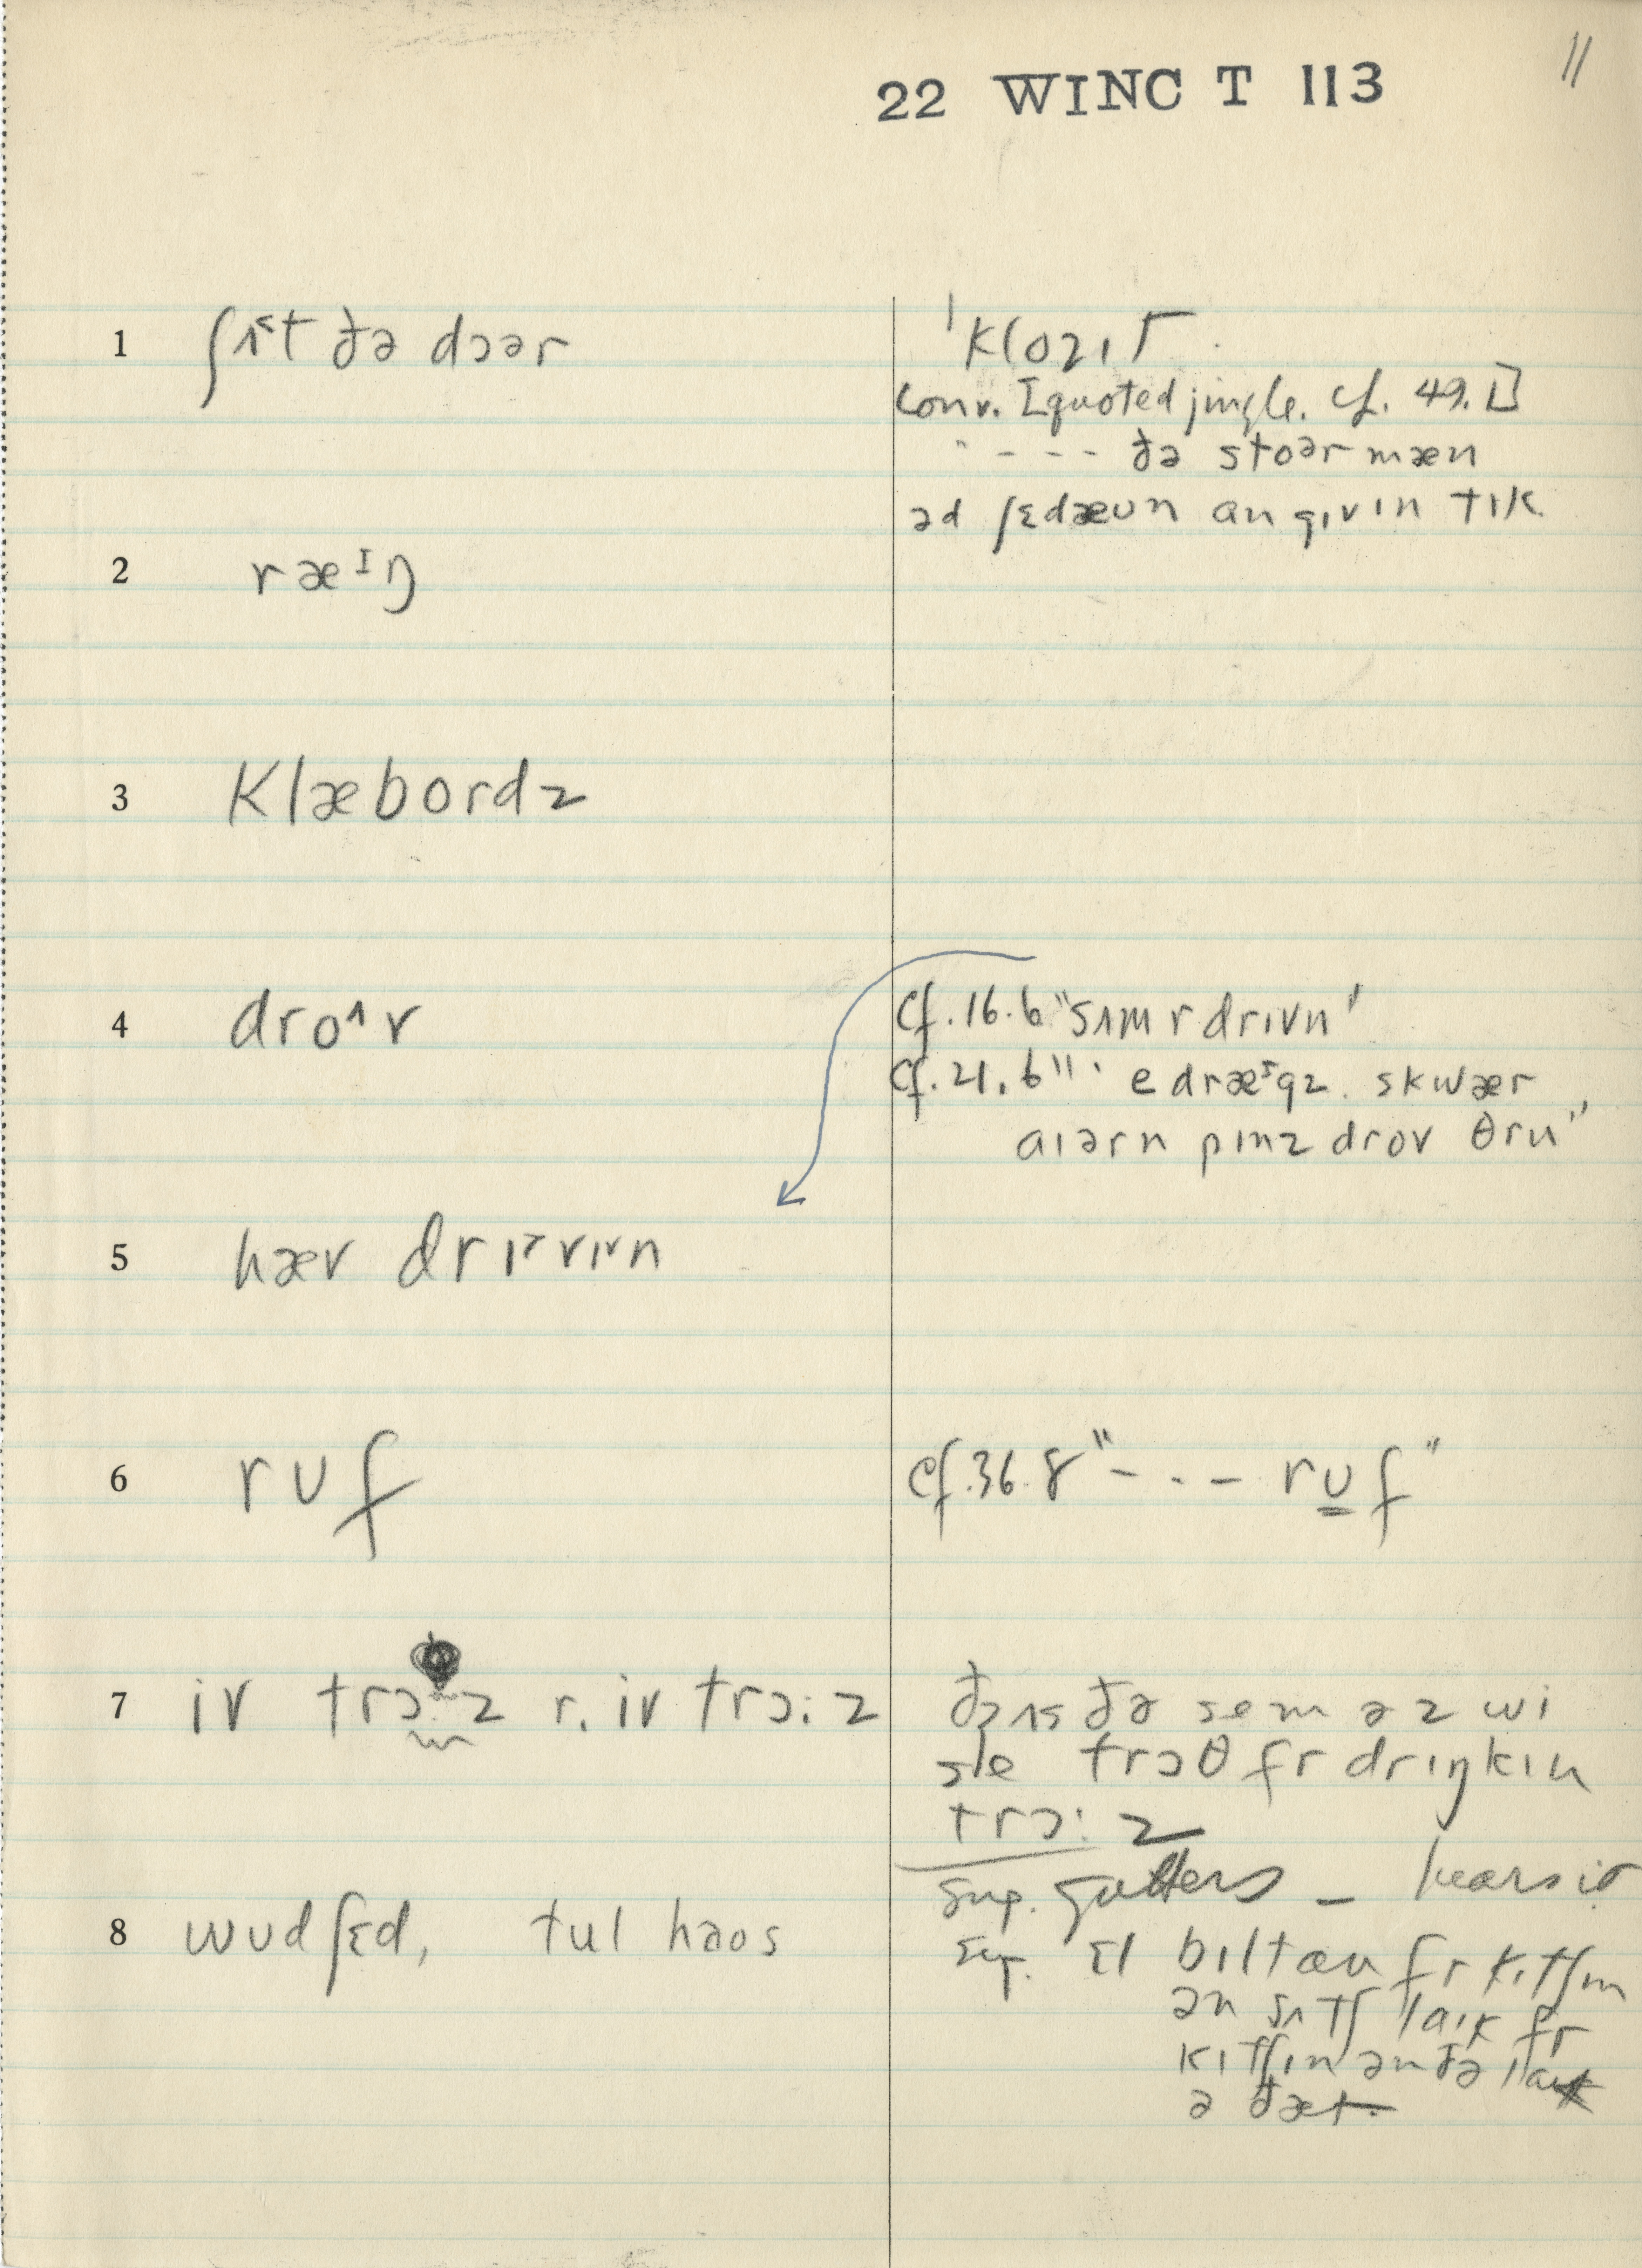 22 WINC T 113
11
1 ʃʌ˂t ðə dɔər
ˈklozɪt
Conv. [quoted jingle. Cf. 49.1]
- - - - ðə stoər mæn
əd ʃɛdæʊn an gɪvɪn tɪk
2 ræᴵŋ
3 klæbordz
4 dro^v
Cf. 16.6 "sʌm r drɪvn"
Cf. 21.6 " e dræᴵgz. skwær
aɪərn pɪnz drov θru"
5 hæv drɪ˞vɪ˞n
6 rʊf
Cf. 36.8 "- - - - rʊf"
7 iv trɔ:z r. iv trɔ:z
ðəts ðə sem əz wi
se trɔθ fr drɪŋkɪn
trɔ:z
Sug. gutters –
8 wʊdʃɛd, tul haos
Sug. ɛl bɪlt fr kɪtʃɪn
ən sʌtʃ laɪk fr
kɪtʃɪn ən ðə laɪk
ə ðæt.